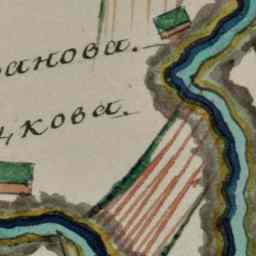 анова.
цкова.